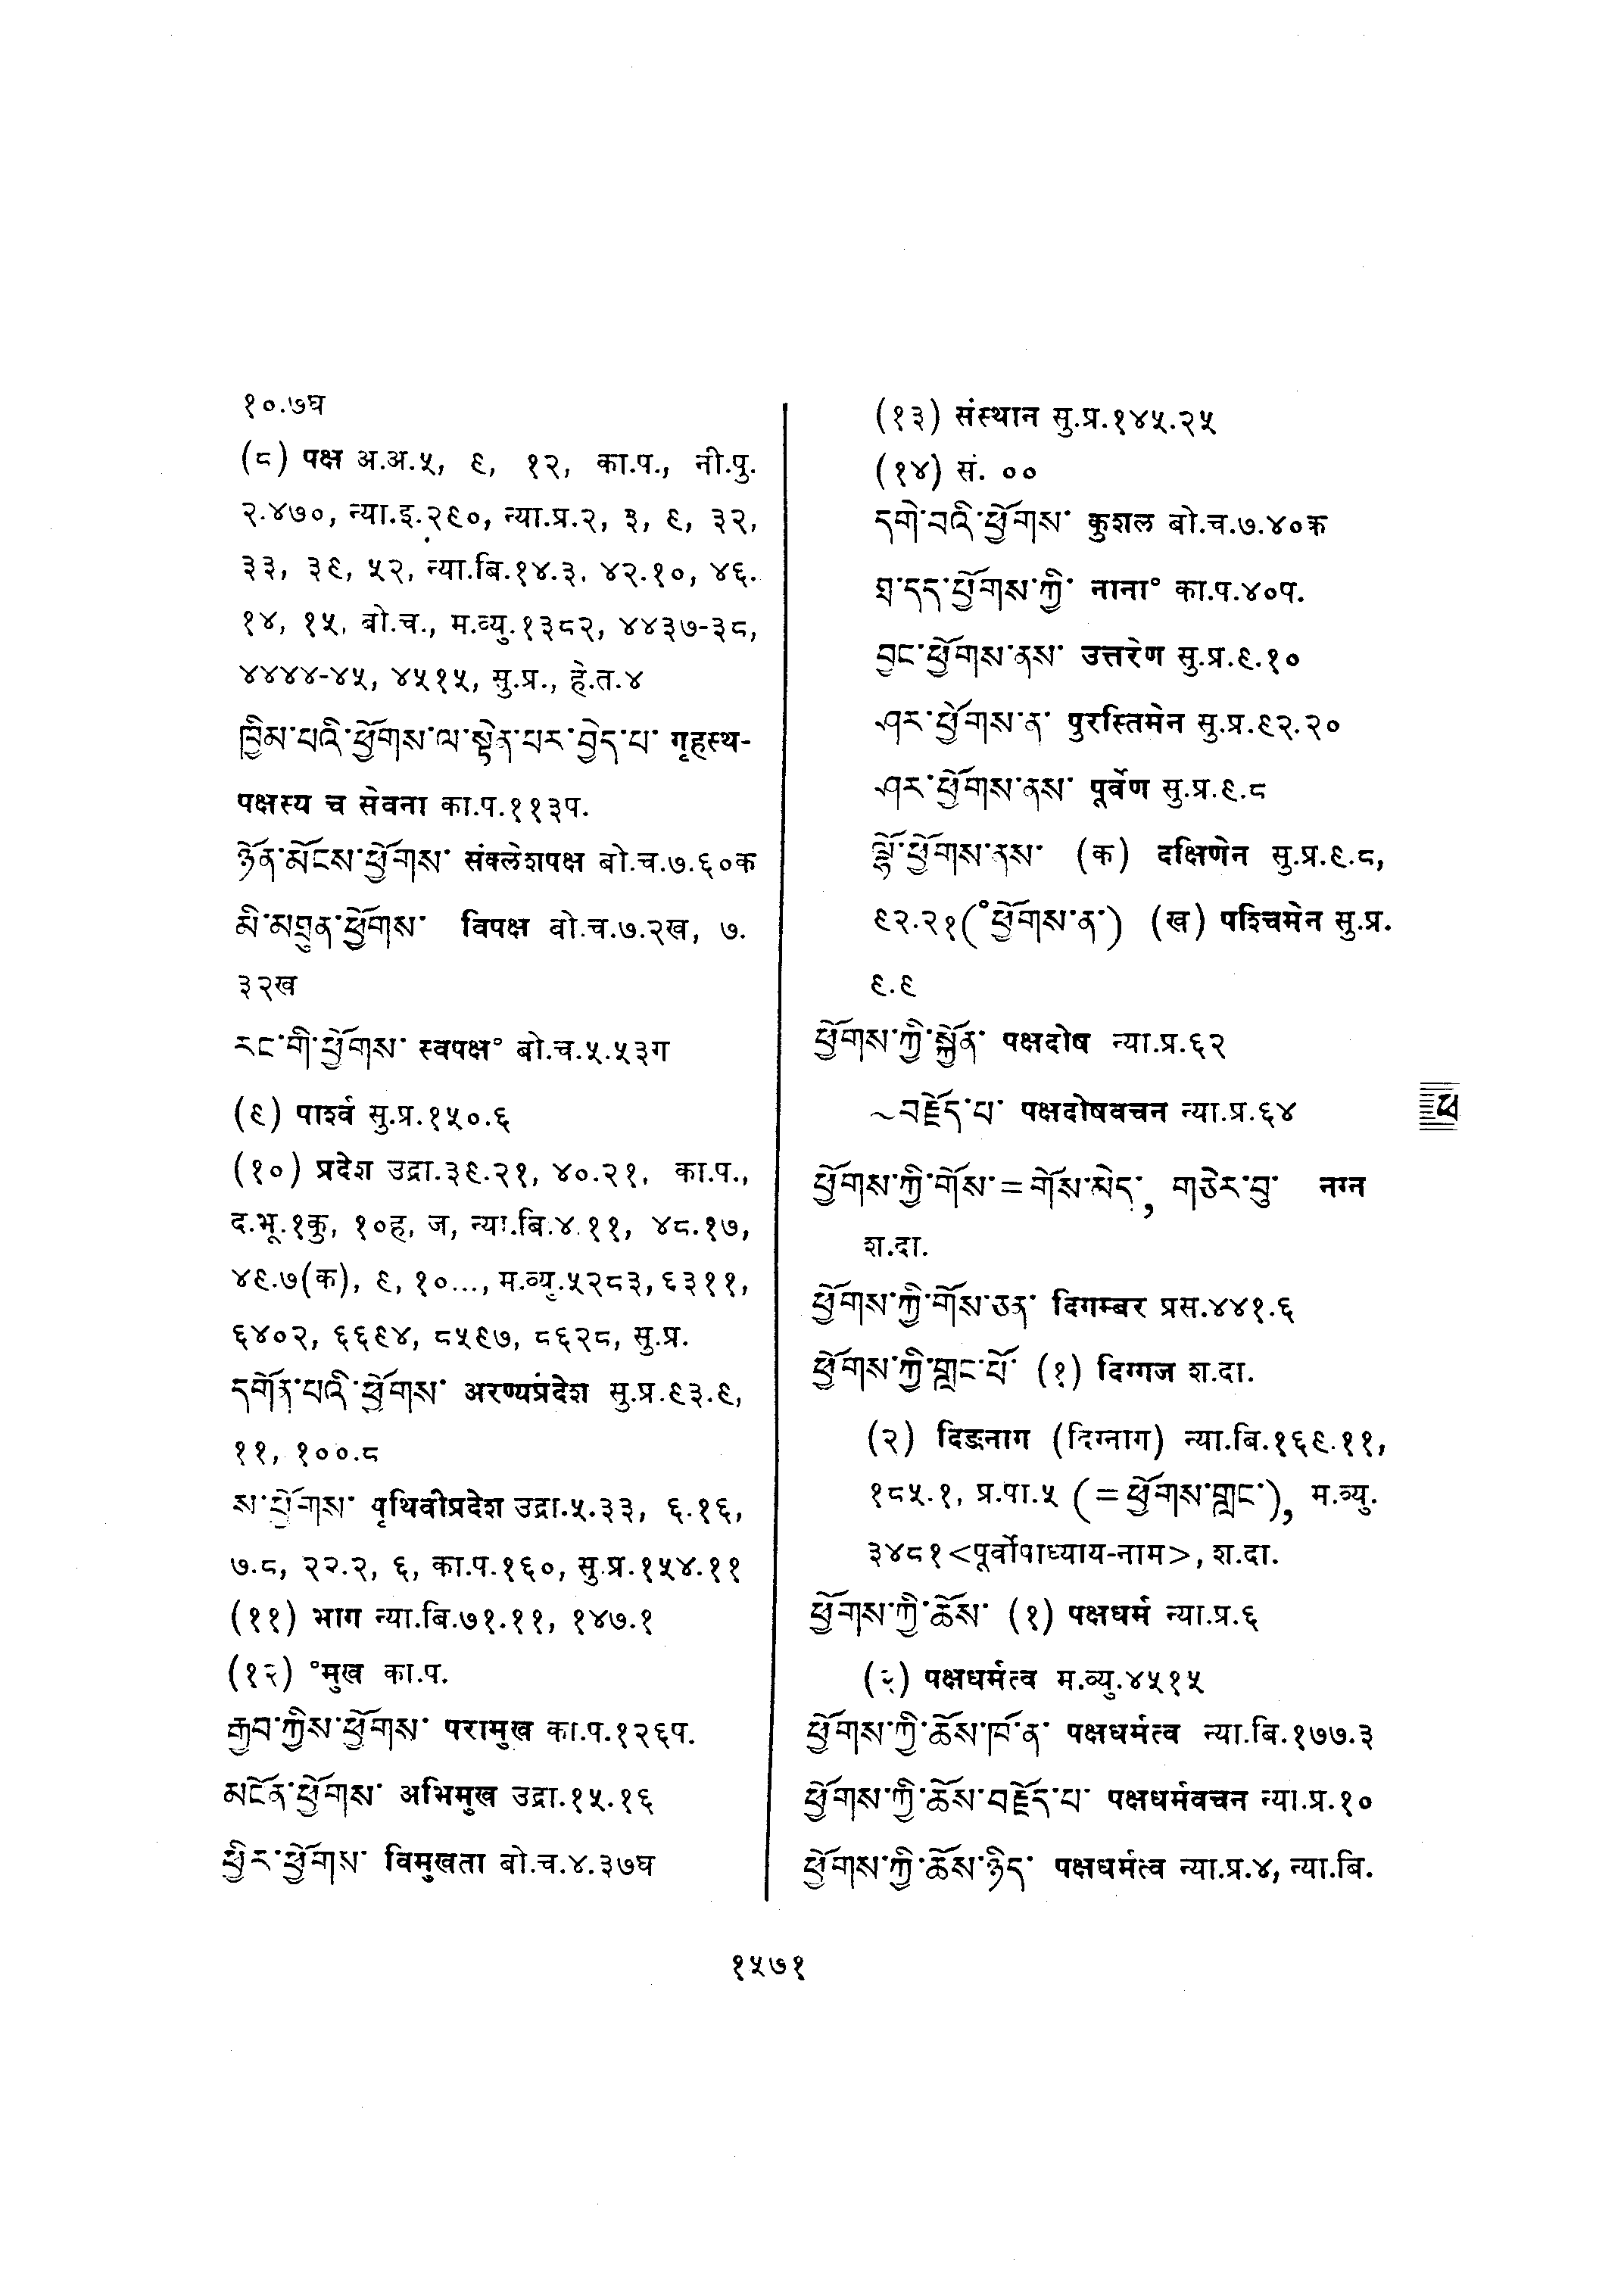 १०.७घ
(८) पक्ष अ.अ.५, ९, १२, का.प., नी.पु.
२.४७०, न्या.इ.२९०, न्या.प्र.२, ३, ९, ३२,
३३, ३९, ५२, न्या.बि.१४.३, ४२.१०, ४६.
१४, १५, बो.च., म.व्यु.१३८२, ४४३७-३८,
४४४४-४५, ४५१५, सु.प्र., हे.त.४
ཁྱིམ་པའི་ཕྱོགས་ལ་སྟེན་པར་བྱེད་པ་ गृहस्थ-
पक्षस्य च सेवना का.प.११३प.
ཉོན་མོངས་ཕྱོགས་ संक्लेशपक्ष बो.च.७.६०क
མི་མཐུན་ཕྱོགས་ विपक्ष बो.च.७.२ख, ७.
३२ख
རང་གི་ཕྱོགས་ स्वपक्ष° बो.च.५.५३ग
(९) पार्श्व सु.प्र.१५०.६
(१०) प्रदेश उद्रा.३९.२१, ४०.२१, का.प.,
द.भू.१कु, १०ह, ज, न्या.बि.४.११, ४८.१७,
४९.७(क), ९, १०..., म.व्यु.५२८३, ६३११,
६४०२, ६६९४, ८५९७, ८६२८, सु.प्र.
དགོན་པའི་ཕྱོགས་ अरण्यप्रदेश सु.प्र.९३.९,
११, १००.८
ས་ཕྱོགས་ पृथिवीप्रदेश उद्रा.५.३३, ६.१६,
७.८, २२.२, ६, का.प.१६०, सु.प्र.१५४.११
(११) भाग न्या.बि.७१.११, १४७.१
(१२) °मुख का.प.
རྒྱབ་ཀྱིས་ཕྱོགས་ परामुख का.प.१२६प.
མངོན་ཕྱོགས་ अभिमुख उद्रा.१५.१६
ཕྱིར་ཕྱོགས་ विमुखता बो.च.४.३७घ
(१३) संस्थान सु.प्र.१४५.२५
(१४) सं. ००
དགེ་བའི་ཕྱོགས་ कुशल बो.च.७.४०क
ཐ་དད་ཕྱོགས་ཀྱི་ नाना° का.प.४०प.
བྱང་ཕྱོགས་ནས་ उत्तरेण सु.प्र.९.१०
ཤར་ཕྱོགས་ན་ पुरस्तिमेन सु.प्र.९२.२०
ཤར་ཕྱོགས་ནས་ पूर्वेण सु.प्र.९.८
ལྷོ་ཕྱོགས་ནས་ (क) दक्षिणेन सु.प्र.९.८,
९२.२१(°ཕྱོགས་ན་) (ख) पश्चिमेन सु.प्र.
९.९
ཕྱོགས་ཀྱི་སྐྱོན་ पक्षदोष न्या.प्र.६२
~བརྗོད་པ་ पक्षदोषवचन न्या.प्र.६४
ཕྱོགས་ཀྱི་གོས་=གོས་མེད་, གཅེར་བུ་ नग्न
श.दा.
ཕྱོགས་ཀྱི་གོས་ཅན་ दिगम्बर प्रस.४४१.६
ཕྱོགས་ཀྱི་གླང་པོ་ (१) दिग्गज श.दा.
(२) दिङनाग (दिग्नाग) न्या.बि.१६९.११,
१८५.१, प्र.पा.५ (=ཕྱོགས་གླང་), म.व्यु.
३४८१<पूर्वोपाध्याय-नाम>, श.दा.
ཕྱོགས་ཀྱི་ཆོས་ (१) पक्षधर्म न्या.प्र.६
(२) पक्षधर्मत्व म.व्यु.४५१५
ཕྱོགས་ཀྱི་ཆོས་ཁོ་ན་ पक्षधर्मत्व न्या.बि.१७७.३
ཕྱོགས་ཀྱི་ཆོས་བརྗོད་པ་ पक्षधर्मवचन न्या.प्र.१०
ཕྱོགས་ཀྱི་ཆོས་ཉིད་ पक्षधर्मत्व न्या.प्र.४, न्या.बि.
ཕ
१५७१